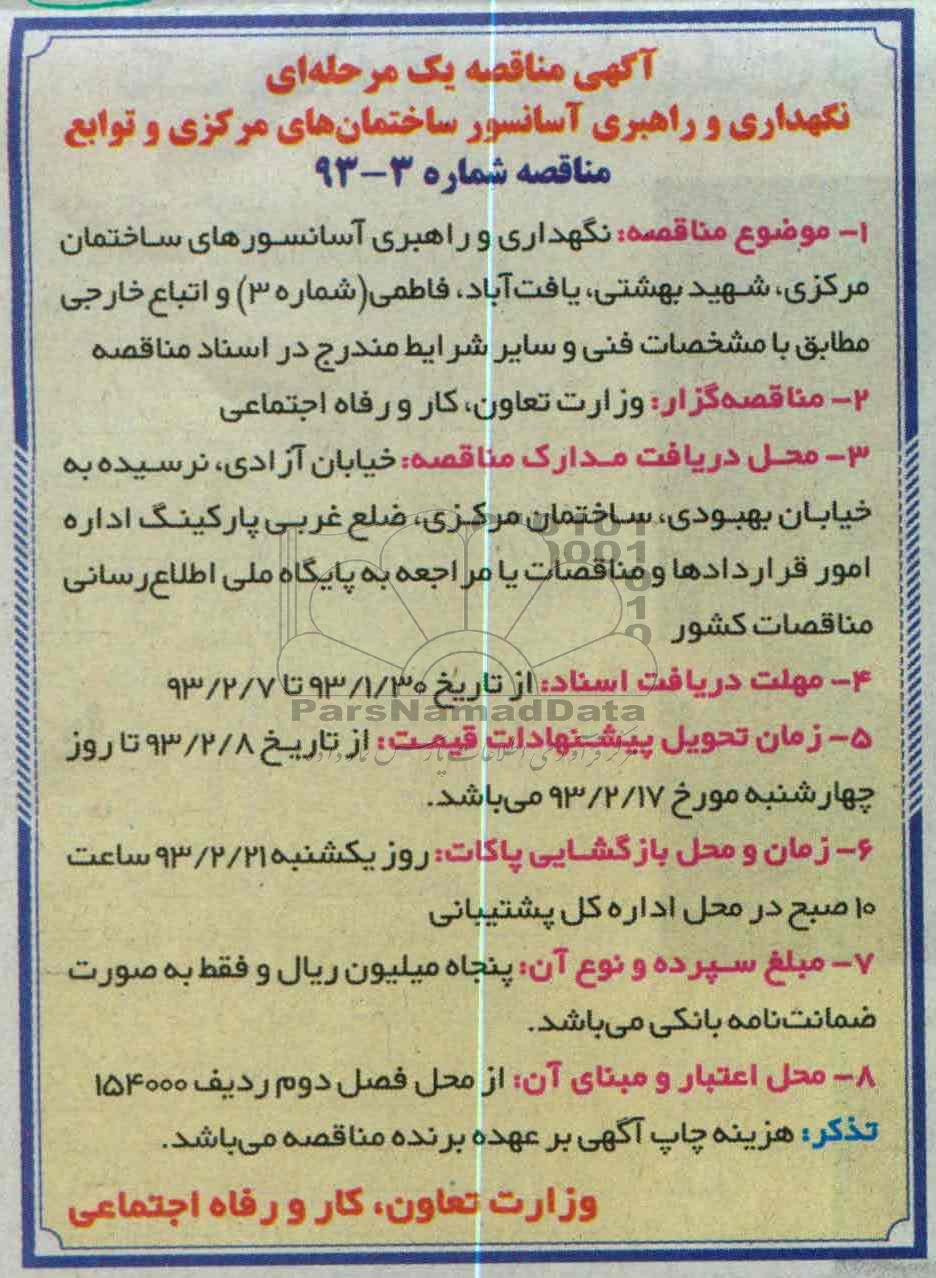 آگهی مناقصه یک مرحله‌ای
نگهداری و راهبری آسانسور ساختمان‌های مرکزی و توابع
مناقصه شماره ۳-۹۳
۱- موضوع مناقصه: نگهداری و راهبری آسانسورهای ساختمان
مرکزی، شهید بهشتی، یافت‌آباد، فاطمی(شماره ۳) و اتباع خارجی
مطابق با مشخصات فنی و سایر شرایط مندرج در اسناد مناقصه
۲- مناقصه‌گزار: وزارت تعاون، کار و رفاه اجتماعی
۳- محل دریافت مدارک مناقصه: خیابان آزادی، نرسیده به
خیابان بهبودی، ساختمان مرکزی، ضلع غربی پارکینگ اداره
امور قراردادها و مناقصات یا مراجعه به پایگاه ملی اطلاع‌رسانی
مناقصات کشور
۴- مهلت دریافت اسناد: از تاریخ ۹۳/۱/۳۰ تا ۹۳/۲/۷
ParsNamadData
۵- زمان تحویل پیشنهادات قیمت: از تاریخ ۹۳/۲/۸ تا روز
چهارشنبه مورخ ۹۳/۲/۱۷ می‌باشد.
۶- زمان و محل بازگشایی پاکات: روز یکشنبه ۹۳/۲/۲۱ ساعت
۱۰ صبح در محل اداره کل پشتیبانی
۷- مبلغ سپرده و نوع آن: پنجاه میلیون ریال و فقط به صورت
ضمانت‌نامه بانکی می‌باشد.
۸- محل اعتبار و مبنای آن: از محل فصل دوم ردیف ۱۵۴۰۰۰
تذکر: هزینه چاپ آگهی بر عهده برنده مناقصه می‌باشد.
وزارت تعاون، کار و رفاه اجتماعی